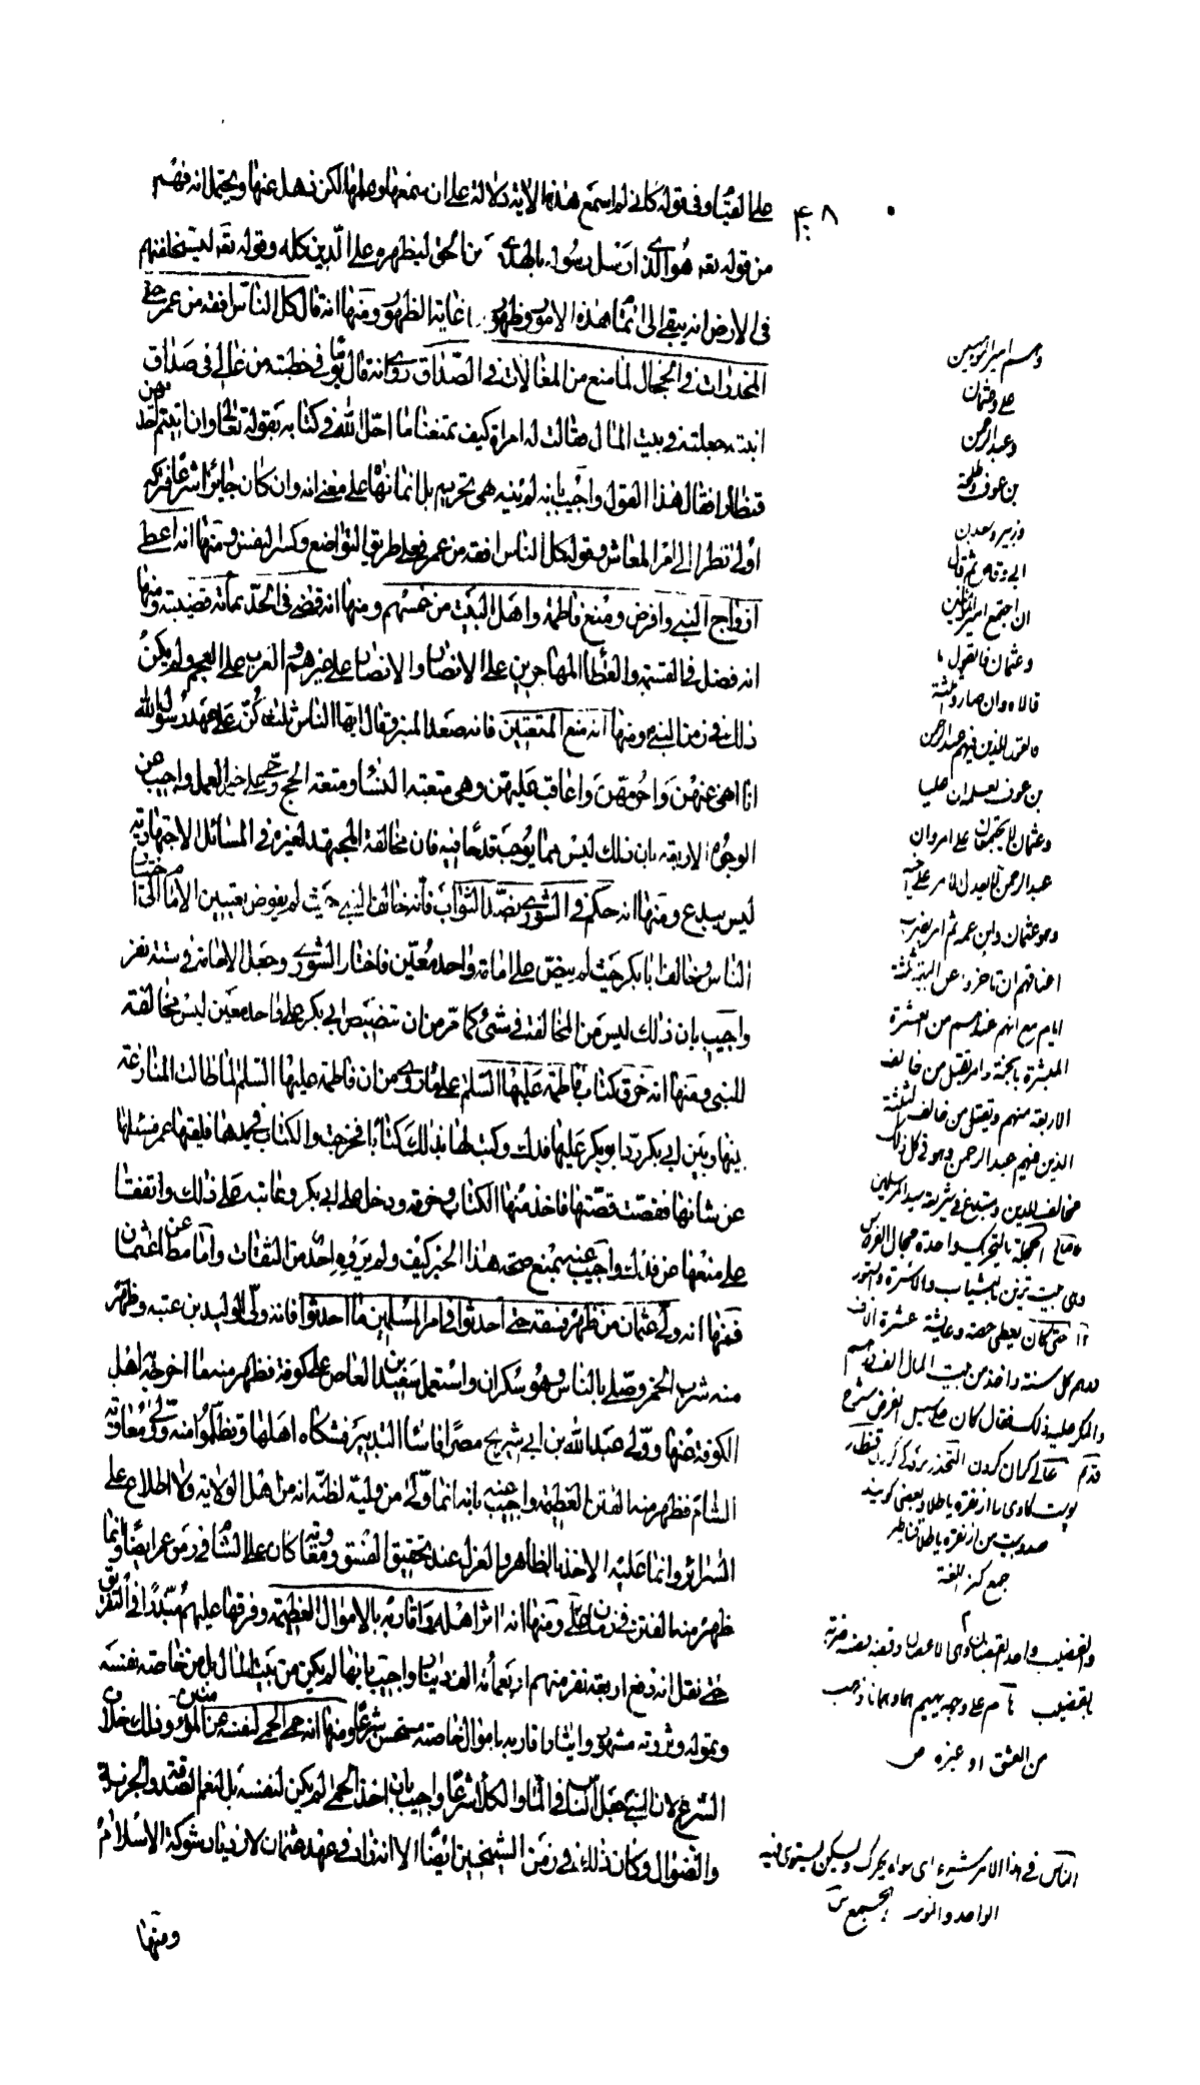 ٤٠٨
على القيام وفي قوله كاني لم اسمع هذه الاية دلالة على ان سمعها وعلمها لكن ذهل عنها ويحتمل انه فهم
من قوله تعه هو الذى ارسل رسوله بالهدى ودين الحق ليظهره على الدين كله وقوله تعه ليستخلفنهم
في الارض انه يبقى الى اتمام هذه الامور وظهورها غاية الظهور ومنها انه قال كل الناس افقه من عمر حتى
المخدرات في الحجال لما منع من المغالات في الصداق روى انه قال يوما في خطبته من غالى في صداق
ابنته جعلته في بيت المال فقالت له امراة كيف تمنعنا ما احل الله في كتابه بقوله تعالى وان اتيتم احديهن
قنطارا فقال هذا القول واجيب بانه لم ينه نهى تحريم بل انما نهاه على معنى انه وان كان جائزا شرعا فتركه
اولى نظرا الى امر المعاش وقوله كل الناس افقه من عمر فعلى طريق التواضع وكسر النفس ومنها انه اعطى
ازواج النبي وافرض ومنع فاطمة واهل البيت من خمسهم ومنها انه قضى في الحد بمائة قضية ومنها
انه فضل في القسمة والعطا المهاجرين على الانصار والانصار على غيرهم والعرب على العجم ولم يكن
ذلك في زمن النبي ومنها انه منع المتعتين فانه صعد المنبر وقال ايها الناس ثلث كن على عهد رسول الله
انا انهى عنهن واحرمهن واعاقب عليهن وهي متعة النساء ومتعة الحج وحي على خير العمل واجيب عن
الوجوه الاربعة بان ذلك ليس مما يوجب قدحا فيه فان مخالفة المجتهد لغيره في المسائل الاجتهادية
ليس ببدع ومنها انه حكم في الشورى بضد الثواب فانه خالف النبي حيث لم يفوض تعيين الامام الى اختيار
الناس وخالف ابا بكر حيث لم ينص على امامة واحد معين فاختار الشورى وجعل الامامة في ستة نفر
واجيب بان ذلك ليس من المخالفة في شئ كما مر من ان تنصيص ابي بكر على واحد معين ليس مخالفة
للنبي ومنها انه خرق كتاب فاطمة عليها السلم على ما روى من ان فاطمة عليها السلم لما طالت المنازعة
بينها وبين ابي بكر رد ابو بكر عليها فدك وكتب لها بذلك كتابا فخرجت والكتاب في يدها فلقيها عمر فسئلها
عن شانها فقصت قصتها فاخذ منها الكتاب وخرقه ودخل على ابي بكر وعاتبه على ذلك واتفقا
على منعها عن فدك واجيب عنه بمنع صحة هذا الخبر كيف ولم يروه احد من الثقات واما مطاعن عثمان
فمنها انه ولى عثمان من ظهر فسقه حتى احدثوا في امر المسلمين ما احدثوا فانه ولى الوليد بن عتبه وظهر
منه شرب الخمر وصلى بالناس وهو سكران واستعمل سعيد بن العاص على كوفة فظهر منه ما اخرجه اهل
الكوفة عنها وولى عبد الله بن ابي شريح مصر فاساء التدبير فشكاه اهلها وتظلموا منه وولى معاوية
الشام فظهر منه الفتن العظيمة واجيب عنه بانه انما ولى من وليه لظنه انه من اهل الولاية ولا اطلاع على
السرائر وانما عليه الاخذ بالظاهر والعزل عند تحقيق الفسق ومعوية كان على الشام في زمن عمر ايضا وانما
ظهر منه الفتن في زمان علي ومنها انه اثر اهله واقاربه بالاموال العظيمة وفرقها عليهم مبذرا في التفريق
حتى نقل انه دفع اربعة نفر منهم اربعمائة الف دينار واجيب بانها لم يكن من بيت المال بل من خاصة نفسه
وتموله وثروته مشهور وايثار اقاربه باموال خاصته مستحسن شرعا ومنها انه حمى الحمى لنفسه عن المؤمنين وذلك خلاف
الشرع لان النبي جعل الناس في الماء والكلاء شرعا واجيب بان اخذ الحمى لم يكن لنفسه بل لنعم الصدقة والجزية
والضوال وكان ذلك في زمن الشيخين ايضا الا انه زاد في عهد عثمان لازدياد شوكة الاسلام
ومنها
وهم امير المؤمنين
على وعثمان
وعبد الرحمن
بن عوف وطلحة
وزبير وسعد بن
ابي وقاص ثم قال
ان اجتمع امير المؤمنين
وعثمان فالقول ما
قالاه وان صاروا ثلثة
فالقول للذين فيهم عبد الرحمن
بن عوف لعلمه ان عليا
وعثمان لا يجتمعان على امر وان
عبد الرحمن لا يعدل الامر على اخيه
وهو عثمان وابن عمه ثم امر بضرب
اعناقهم ان تاخروا عن البيعة ثلثة
ايام مع انهم عندهم من العشرة
المبشرة بالجنة وامر بقتل من خالف
الاربعة منهم وبقتل من خالف الثلثة
الذين فيهم عبد الرحمن وهو في كل ذلك
مخالف للدين ومبتدع في شريعة سيد المرسلين
الحجلة بالتحريك واحدة حجال العروس
وهي بيت تزين بالثياب والاسرة والستور
حتى كان يعطى حفصة وعايشة عشرة الاف
درهم كل سنة واخذ من بيت المال الف درهم
وانكر عليه ذلك فقال كان على سبيل القرض شرح
بوست كاوى پر از نقره يا طلا وبعضى كويند
جمع كنز اللغة
والقضيب واحد القضبان
بالقضيب
من العشق او غيره ص
الناس في هذا الامر شرع اى سواء يحرك ويسكن يستوى فيه
الواحد والمؤنث والجمع ص